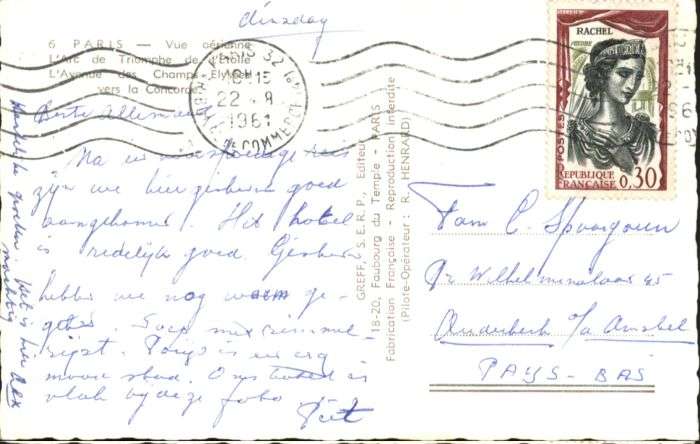 dinsdag
6 PARIS — Vue aérienne
L'Arc de Triomphe de l'Etoile
L'Avenue des Champs-Elysées
vers la Concorde
PARIS 32
18H15
22 - 8
1961
COMMERCE
RACHEL
PHEDRE
POSTES
REPUBLIQUE
FRANÇAISE 0,30
Beste Allemaal
Na
zijn we hier gisteren goed
aangekomen. Het hotel
is redelijk goed. Gisteren
hebben we nog warm ge-
geten. Soep
rijst. Parijs is een erg
mooie stad. Ons hotel is
vlak bij deze foto.
Piet
Hartelijke groeten. Het is hier
machtig
GREFF, S.E.R.P., Editeur
18-20, Faubourg du Temple - PARIS
Fabrication Française - Reproduction interdite
(Pilote-Opérateur : R. HENRARD)
Fam C. Spoorgoren
Pr Wilhelminalaan 45
Ouderkerk o/d Amstel
PAYS-BAS